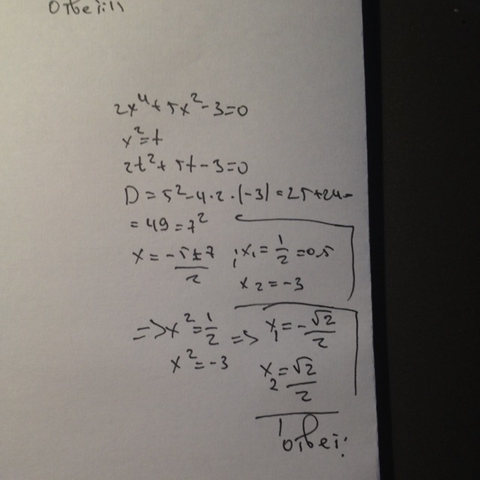 Ответ:
2x⁴+5x²-3=0
x²=t
2t²+5t-3=0
D=5²-4·2·(-3)=25+24=
=49=7²
x=(-5±7)/2 ; x₁=1/2=0.5
x₂=-3
=> x²=1/2 => x₁=-√2/2
x²=-3
x₂=√2/2
Ответ: